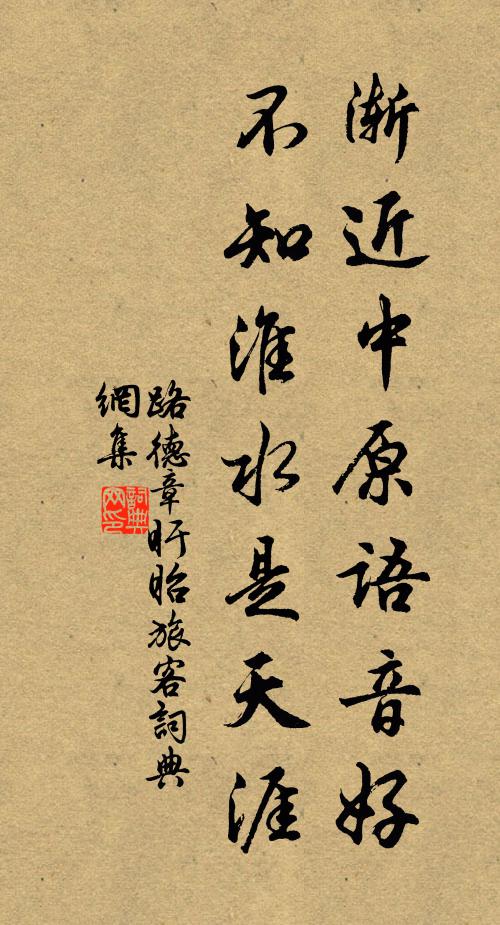 渐近中原語音好
不知淮水是天涯
路德章盱眙旅客詞典
網集
詞典
网印